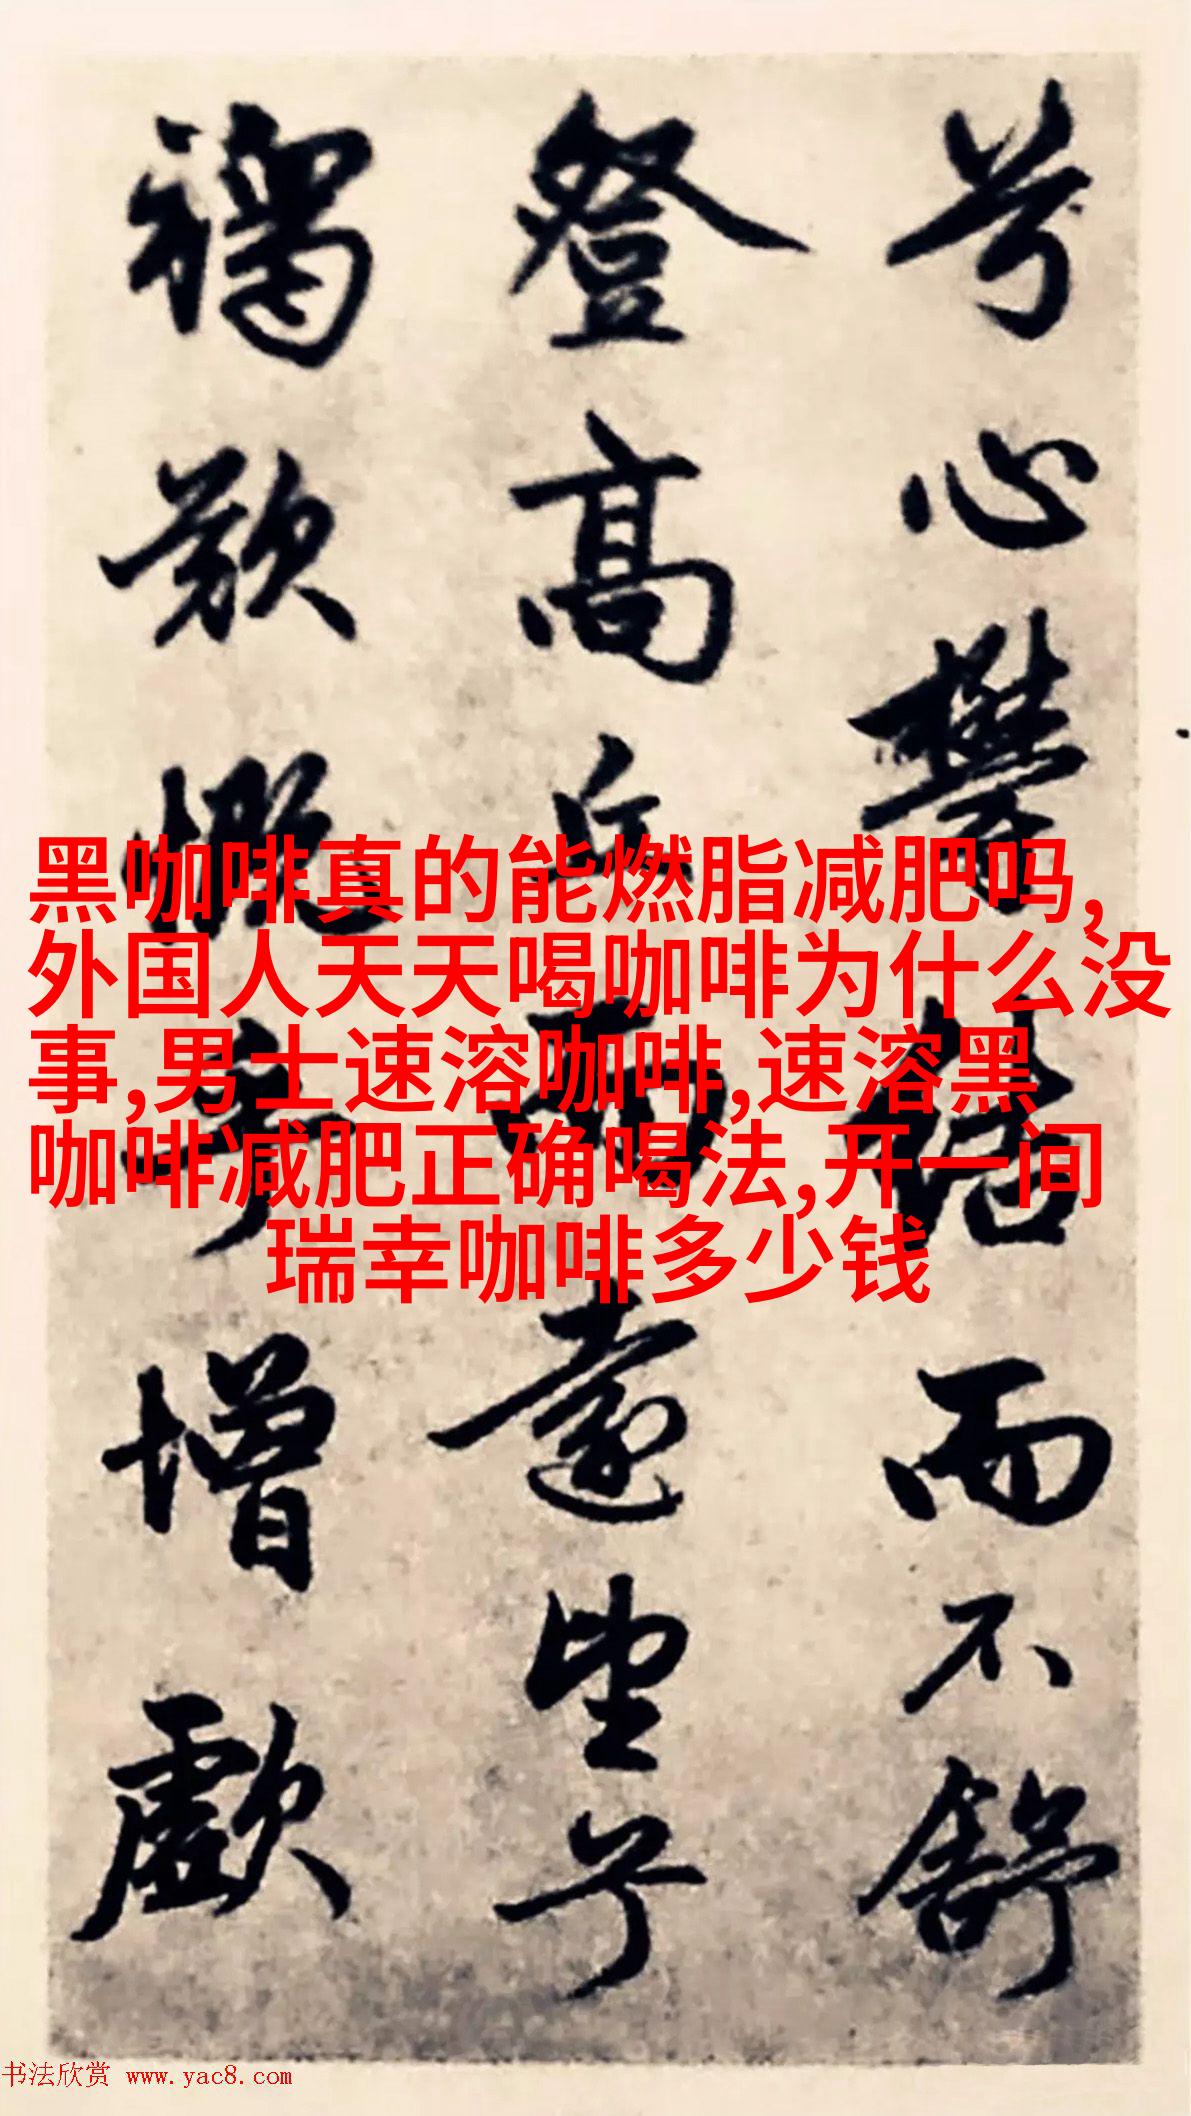 兮心鬱結而不舒
登高丘而遠望兮
增歔
黑咖啡真的能燃脂减肥吗,
外国人天天喝咖啡为什么没
事,男士速溶咖啡,速溶黑
咖啡减肥正确喝法,开一间
瑞幸咖啡多少钱
书法欣赏 www.yac8.com